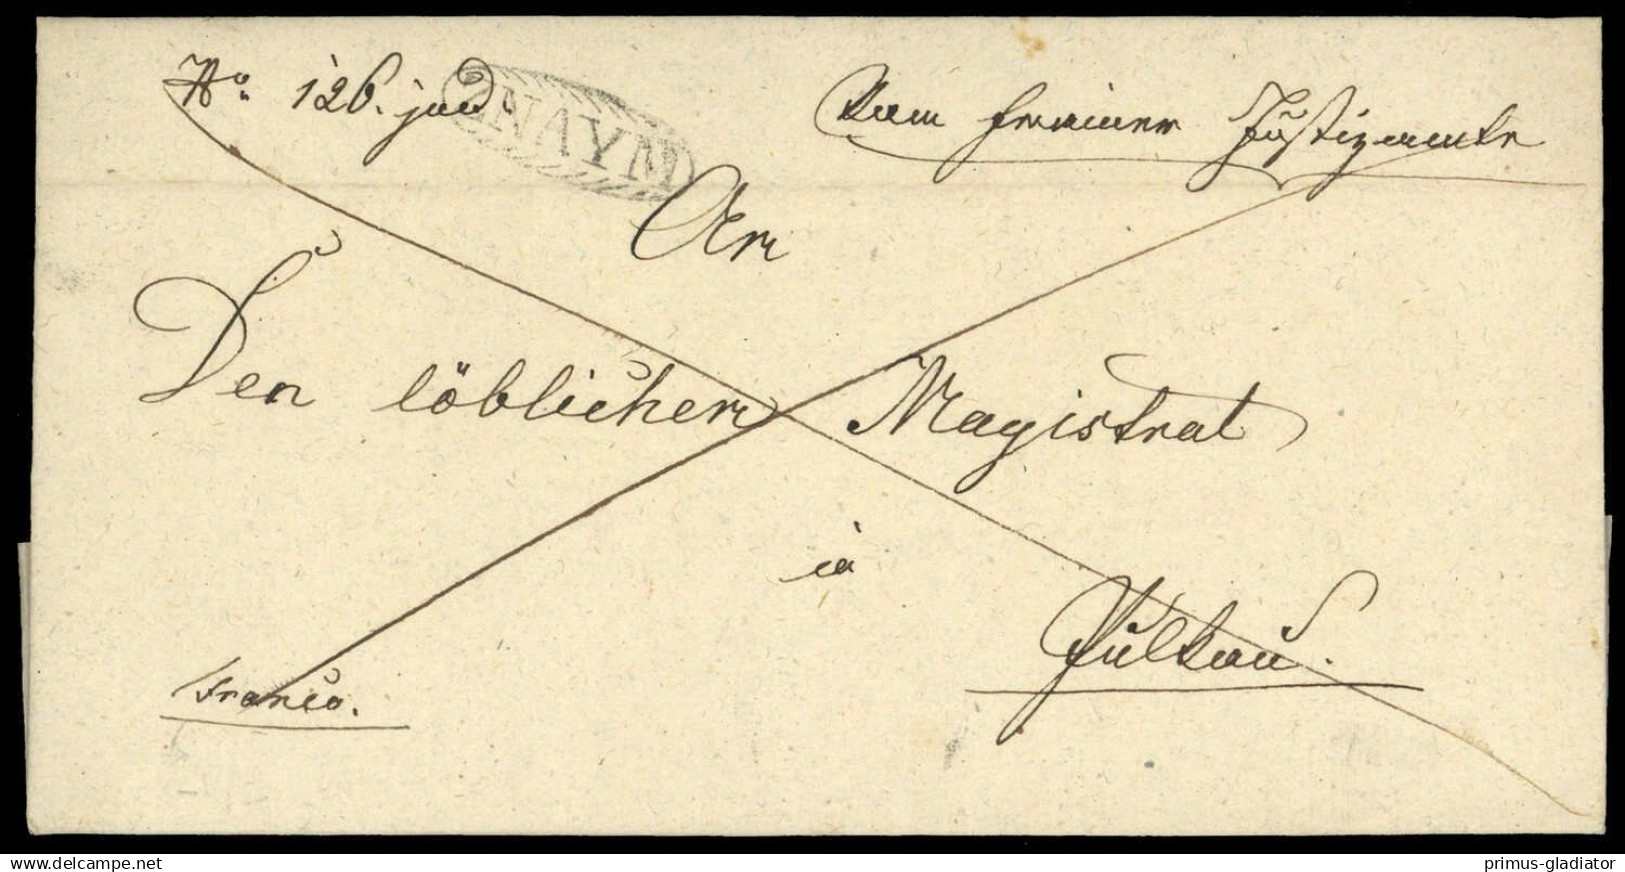 No. 126. jud
ZNAYM
Vom Frainer Justizamte
An
Den löblichen Magistrat
in
Pulkau.
Franco.
www.delcampe.net
primus-gladiator